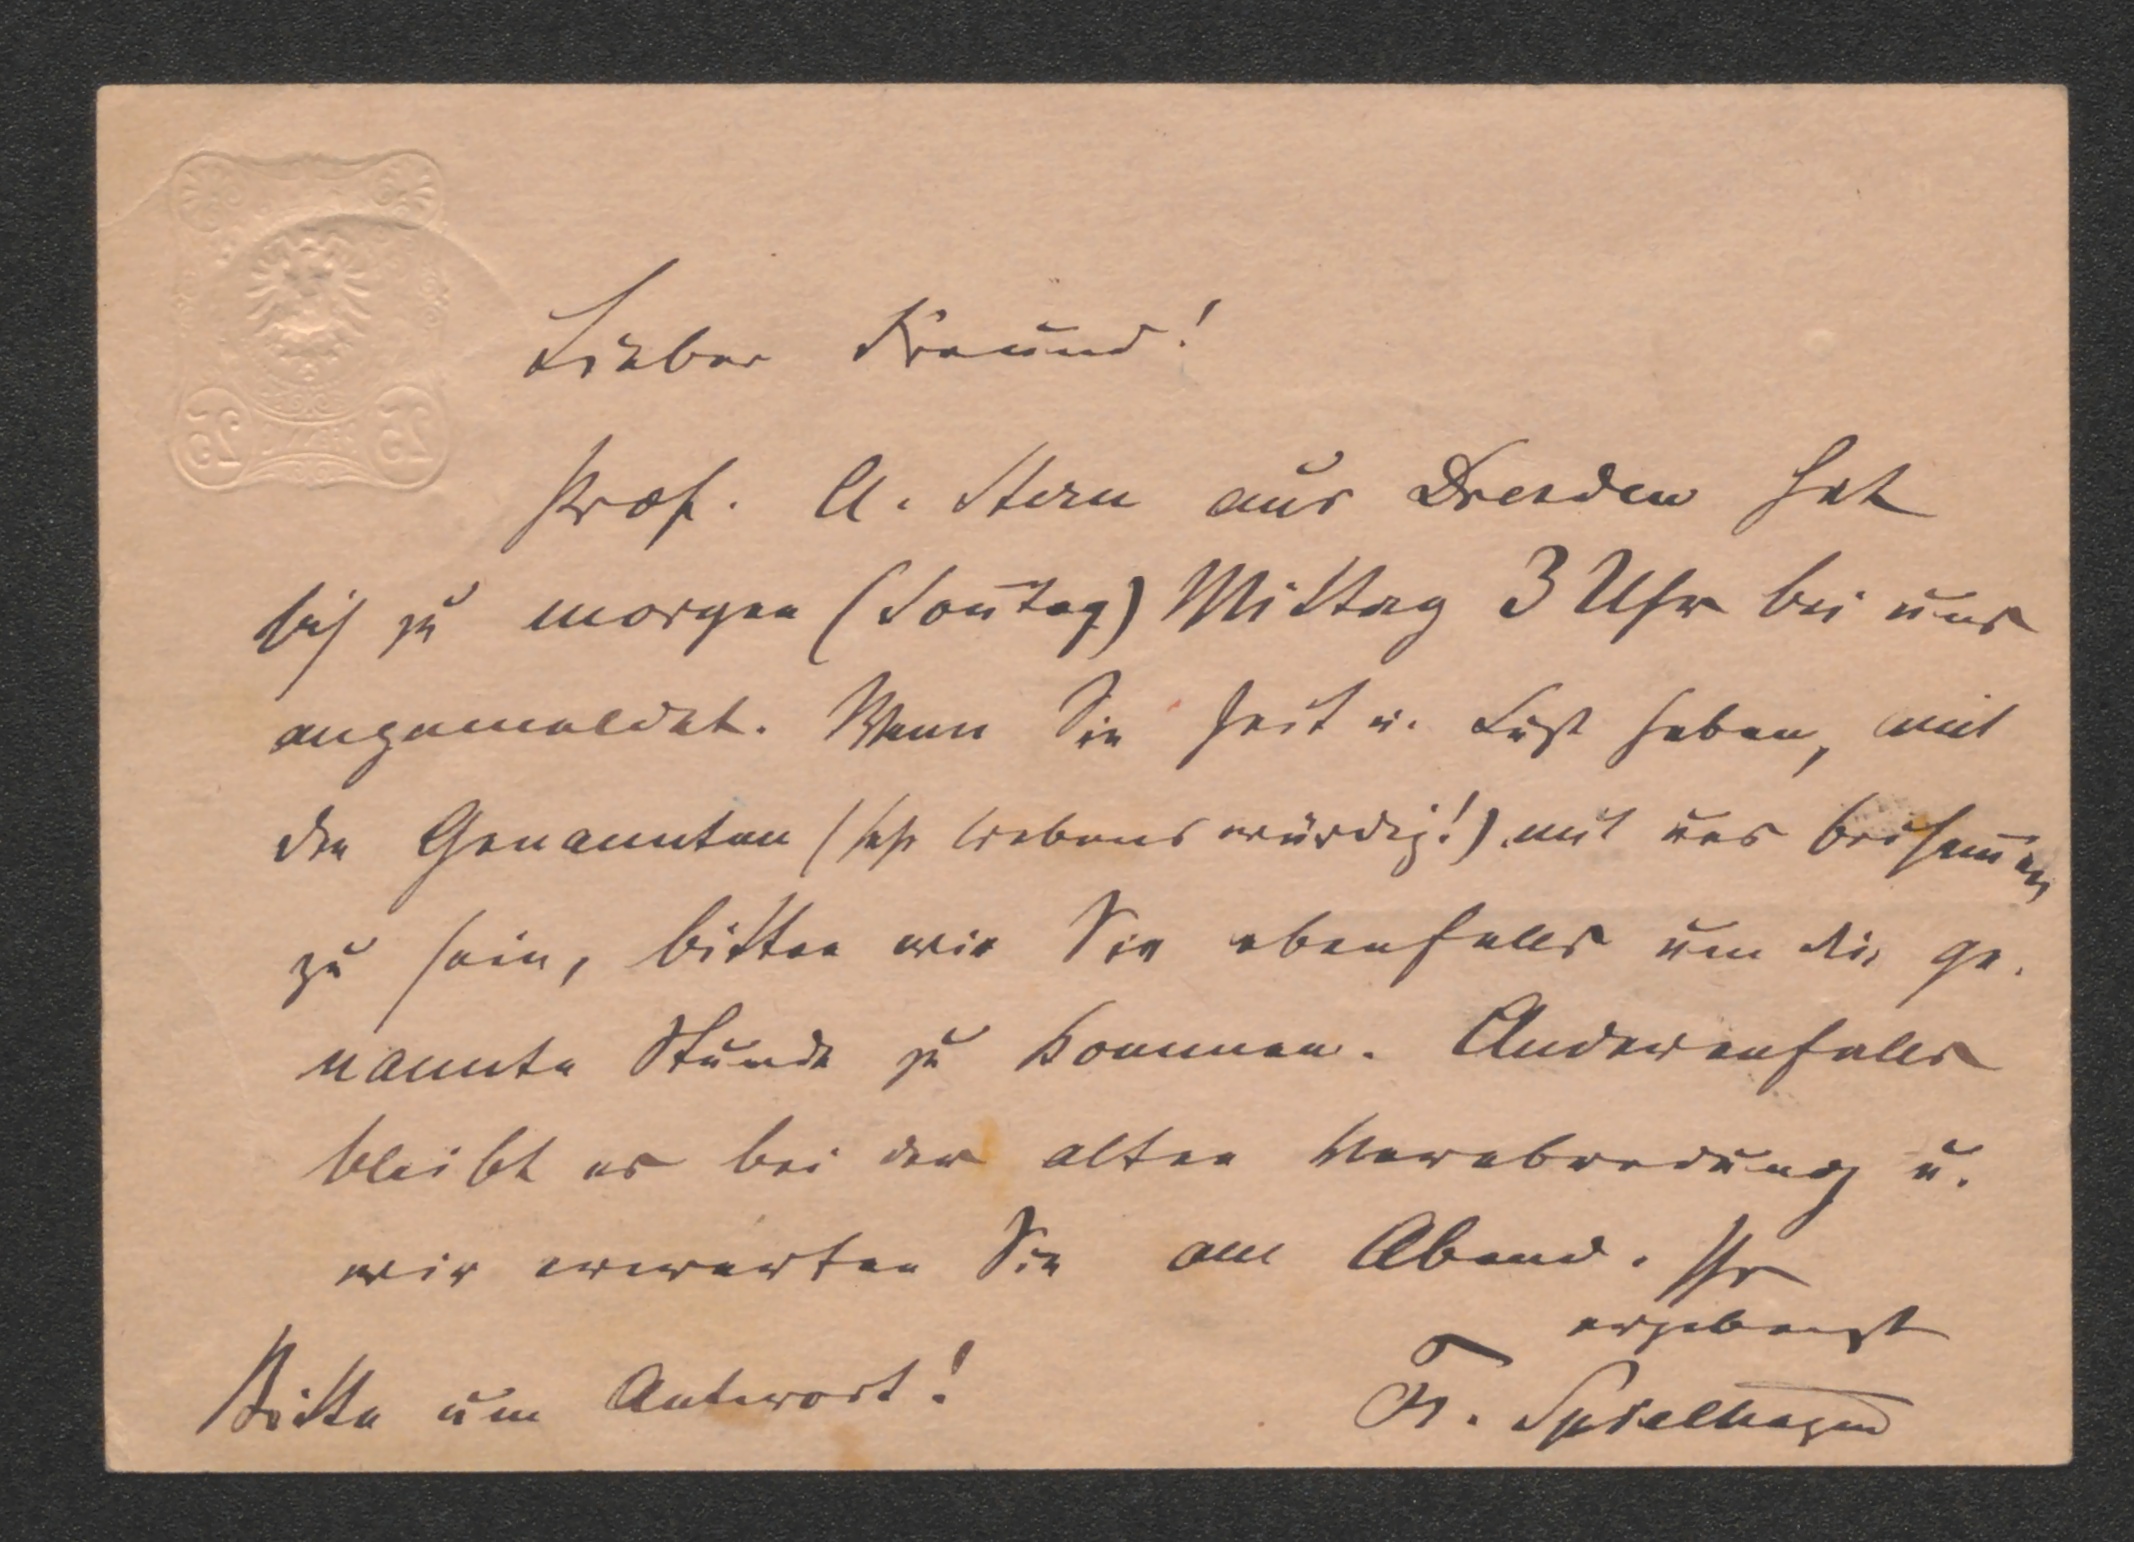 Lieber Freund!
Prof. A. Stern aus Dresden hat
sich zu morgen (Soñtag) Mittag 3 Uhr bei uns
angemeldet. Wenn Sie Zeit u. Lust haben, mit
den Genannten (sehr liebenswürdig!) mit uns beisam̄en
zu sein, bitten wir Sie ebenfalls um die ge-
nannte Stunde zu kommen. Anderenfalls
bleibt es bei der alten Verabredung u.
wir erwarten Sie am Abend. Ihr
ergebenst
Bitte um Antwort! Fr. Spielhagen